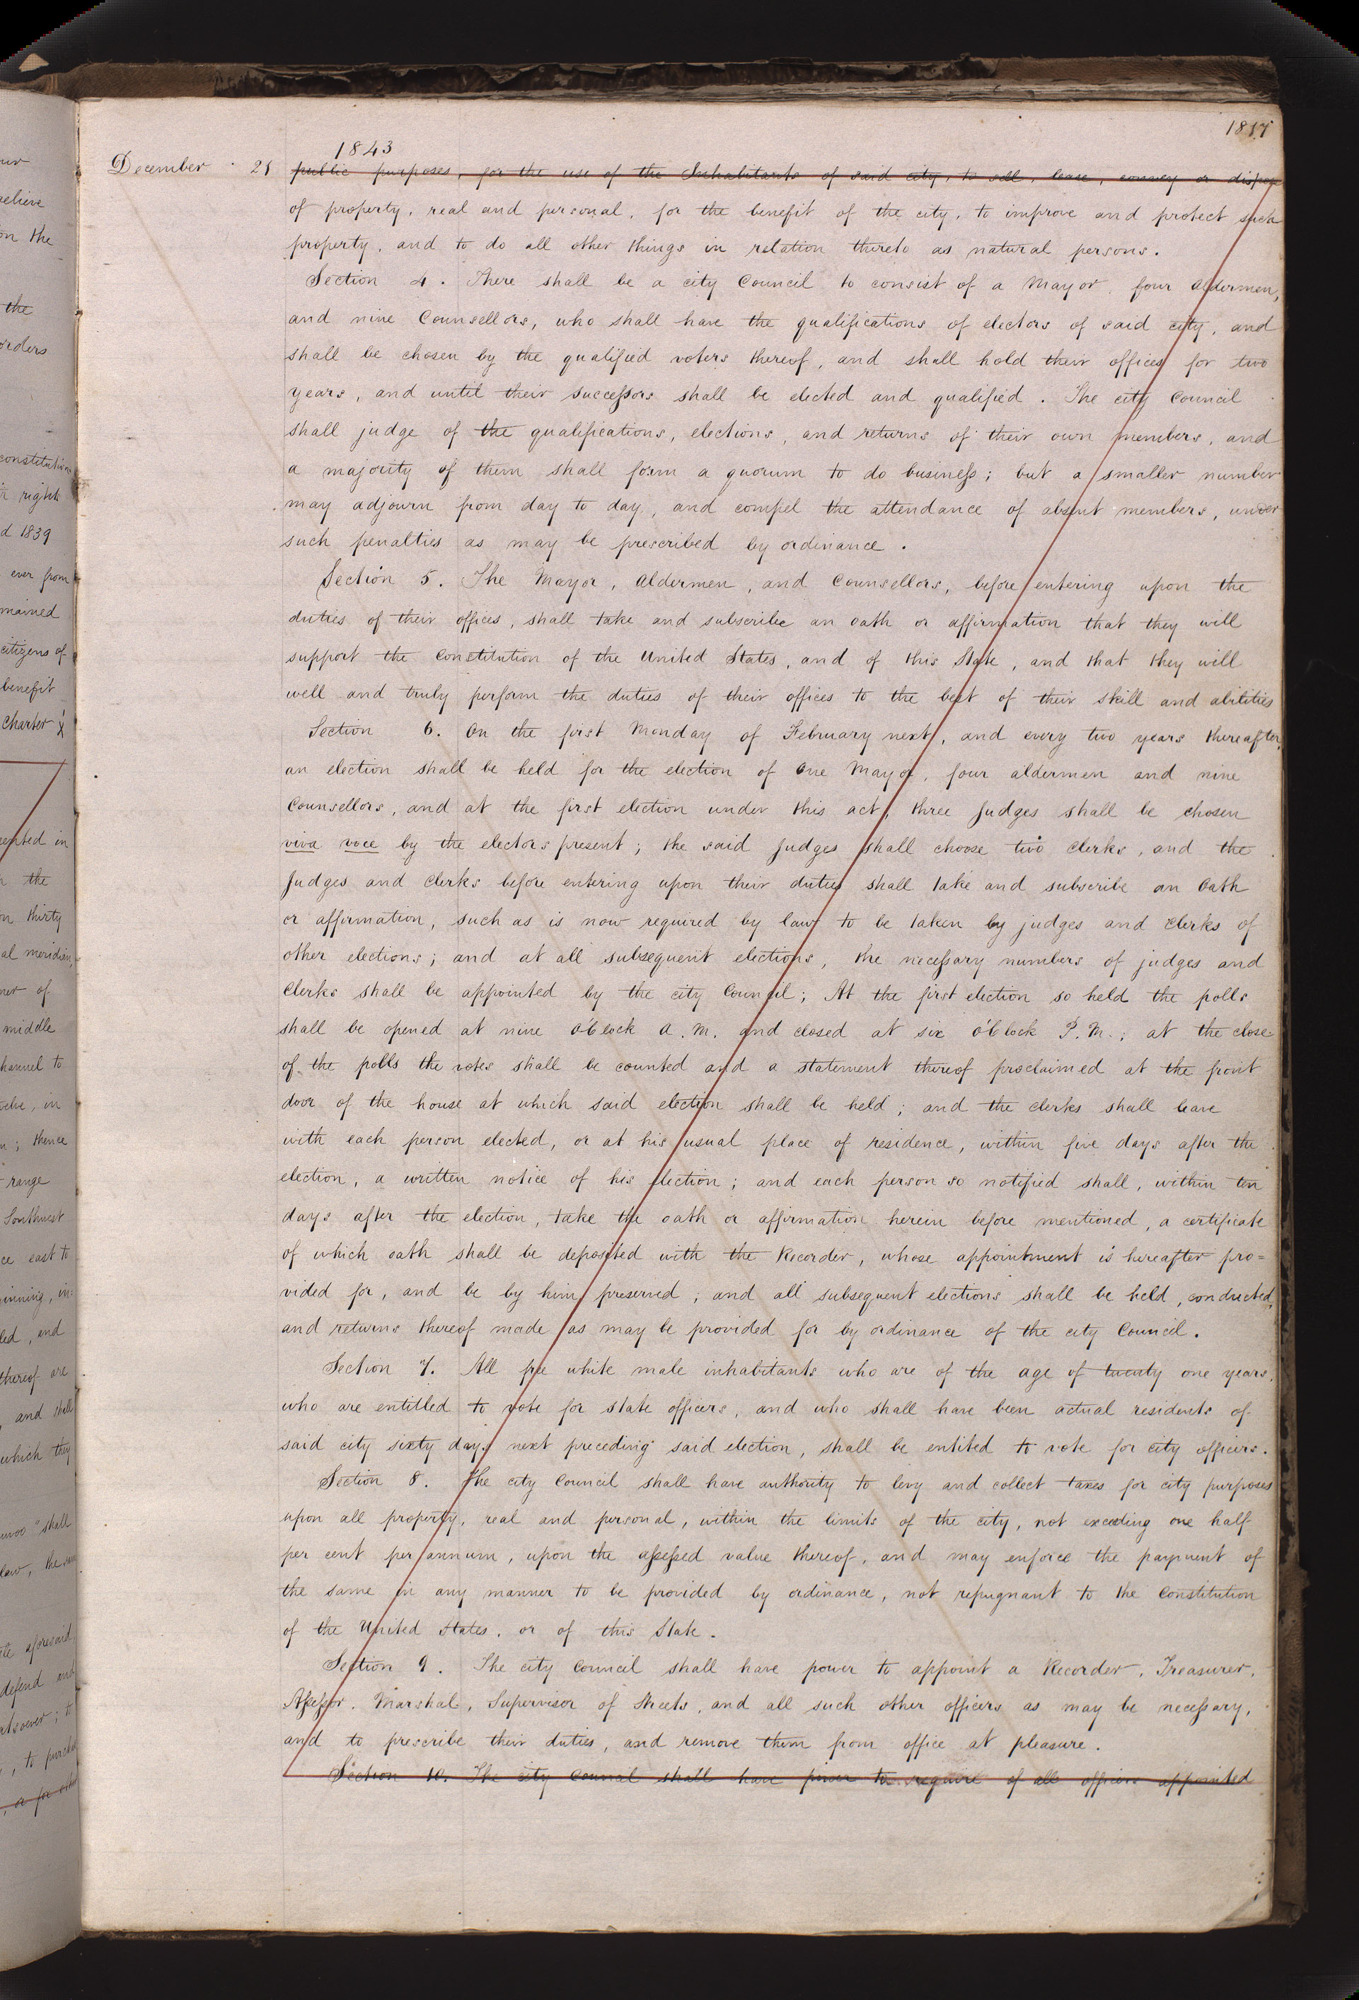 1817
1843
December 21 public purposes, for the use of the Inhabitants of said city, to sell, lease, convey or dispose
of property, real and personal, for the benefit of the city, to improve and protect such
property, and to do all other things in relation thereto as natural persons.
Section 4. There shall be a city Council to consist of a Mayor, four aldermen,
and nine Counsellors, who shall have the qualifications of electors of said city, and
shall be chosen by the qualified voters thereof, and shall hold their offices for two
years, and until their successors shall be elected and qualified. The city Council
shall judge of the qualifications, elections, and returns of their own members, and
a majority of them shall form a quorum to do business; but a smaller number
may adjourn from day to day, and compel the attendance of absent members, under
such penalties as may be prescribed by ordinance.
Section 5. The Mayor, Aldermen, and Counsellors, before entering upon the
duties of their offices, shall take and subscribe an oath or affirmation that they will
support the Constitution of the United States, and of this State, and that they will
well and truly perform the duties of their offices to the best of their skill and abilities
Section 6. On the first Monday of February next, and every two years thereafter,
an election shall be held for the election of One Mayor, four aldermen and nine
Counsellors, and at the first election under this act, three Judges shall be chosen
viva voce by the electors present; the said Judges shall choose two clerks, and the
Judges and Clerks before entering upon their duties shall take and subscribe an Oath
or affirmation, such as is now required by law to be taken by judges and clerks of
other elections; and at all subsequent elections, the necessary numbers of judges and
Clerks shall be appointed by the city Council; At the first election so held the polls
shall be opened at nine o'Clock A. M. and closed at six o'Clock P. M.; at the close
of the polls the votes shall be counted and a statement thereof proclaimed at the front
door of the house at which said election shall be held; and the clerks shall leave
with each person elected, or at his usual place of residence, within five days after the
election, a written notice of his election; and each person so notified shall, within ten
days after the election, take the oath or affirmation herein before mentioned, a certificate
of which oath shall be deposited with the Recorder, whose appointment is hereafter pro=
vided for, and be by him preserved; and all subsequent elections shall be held, conducted,
and returns thereof made as may be provided for by ordinance of the city Council.
Section 7. All free white male inhabitants who are of the age of twenty one years,
who are entitled to vote for state officers, and who shall have been actual residents of
said city sixty days next preceding said election, shall be entitled to vote for city officers.
Section 8. The city Council shall have authority to levy and collect taxes for city purposes
upon all property, real and personal, within the limits of the city, not exceeding one half
per cent per annum, upon the assessed value thereof, and may enforce the payment of
the same in any manner to be provided by ordinance, not repugnant to the Constitution
of the United States, or of this State.
Section 9. The city Council shall have power to appoint a Recorder, Treasurer,
Assessor, Marshal, Supervisor of Streets, and all such other officers as may be necessary,
and to prescribe their duties, and remove them from office at pleasure.
Section 10. The city Council shall have power to require of all officers appointed